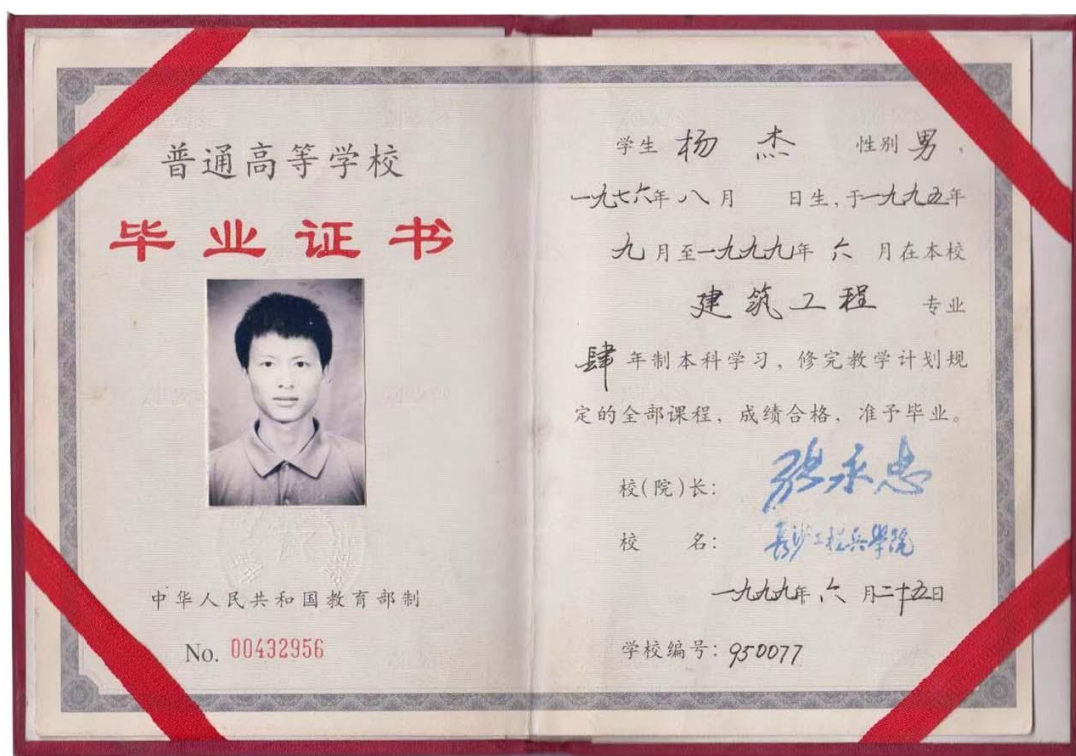 普通高等学校
毕业证书
中华人民共和国教育部制
No. 00432956
学生 杨 杰 性别 男,
一九七六年 八 月 日生,于一九九五年
九 月至一九九九年 六 月在本校
建筑工程 专业
肆 年制本科学习,修完教学计划规
定的全部课程,成绩合格,准予毕业。
校(院)长: 张永忠
校 名: 长沙工程兵学院
一九九九年 六 月二十五日
学校编号: 950077